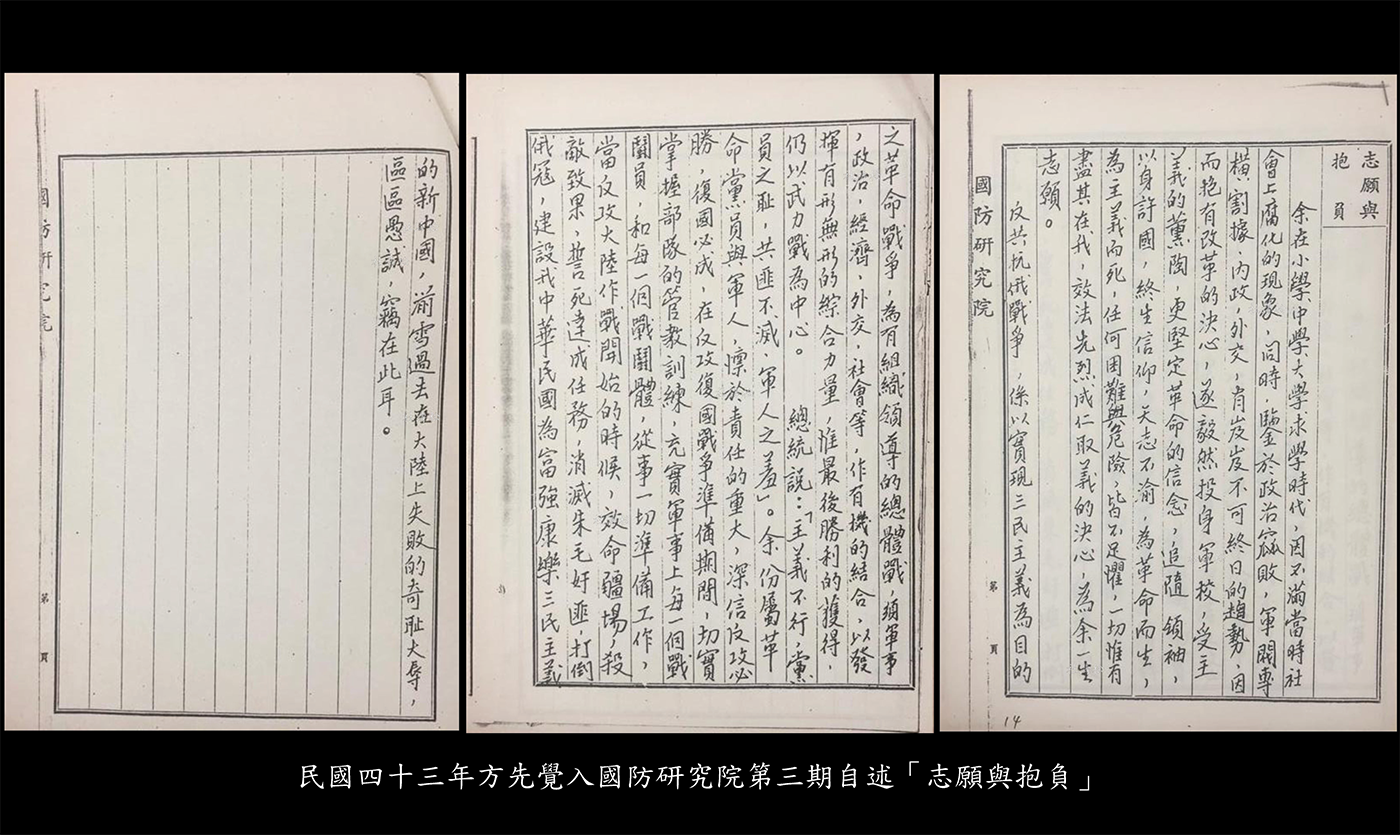 志願與
抱負
余在小學中學大學求學時代，因不滿當時社
會上腐化的現象，同時，鑒於政治窳敗，軍閥專
橫，割據，內政，外交，有岌岌不可終日的趨勢，因
而抱有改革的決心，遂毅然投身軍校，受主
義的薰陶，更堅定革命的信念，追隨 領袖，
以身許國，終生信仰，矢志不渝，為革命而生，
為主義而死，任何困難與危險，皆不足懼，一切惟有
盡其在我，效法先烈成仁取義的決心，為余一生
志願。
反共抗俄戰爭，係以實現三民主義為目的
國防研究院
第 頁
14
之革命戰爭，為有組織領導的總體戰，須軍事
，政治，經濟，外交，社會等，作有機的結合，以發
揮有形無形的綜合力量，惟最後勝利的獲得，
仍以武力戰為中心。 總統說：「主義不行，黨
員之恥，共匪不滅，軍人之羞」。余份屬革
命黨員與軍人，懍於責任的重大，深信反攻必
勝，復國必成，在反攻復國戰爭準備期間，切實
掌握部隊的管教訓練，充實軍事上每一個戰
鬪員，和每一個戰鬪體，從事一切準備工作，
當反攻大陸作戰開始的時候，效命疆場，殺
敵致果，誓死達成任務，消滅朱毛奸匪，打倒
俄寇，建設我中華民國為富強康樂三民主義
的新中國，湔雪過去在大陸上失敗的奇恥大辱，
區區愚誠，竊在此耳。
國防研究院
第 頁
民國四十三年方先覺入國防研究院第三期自述「志願與抱負」